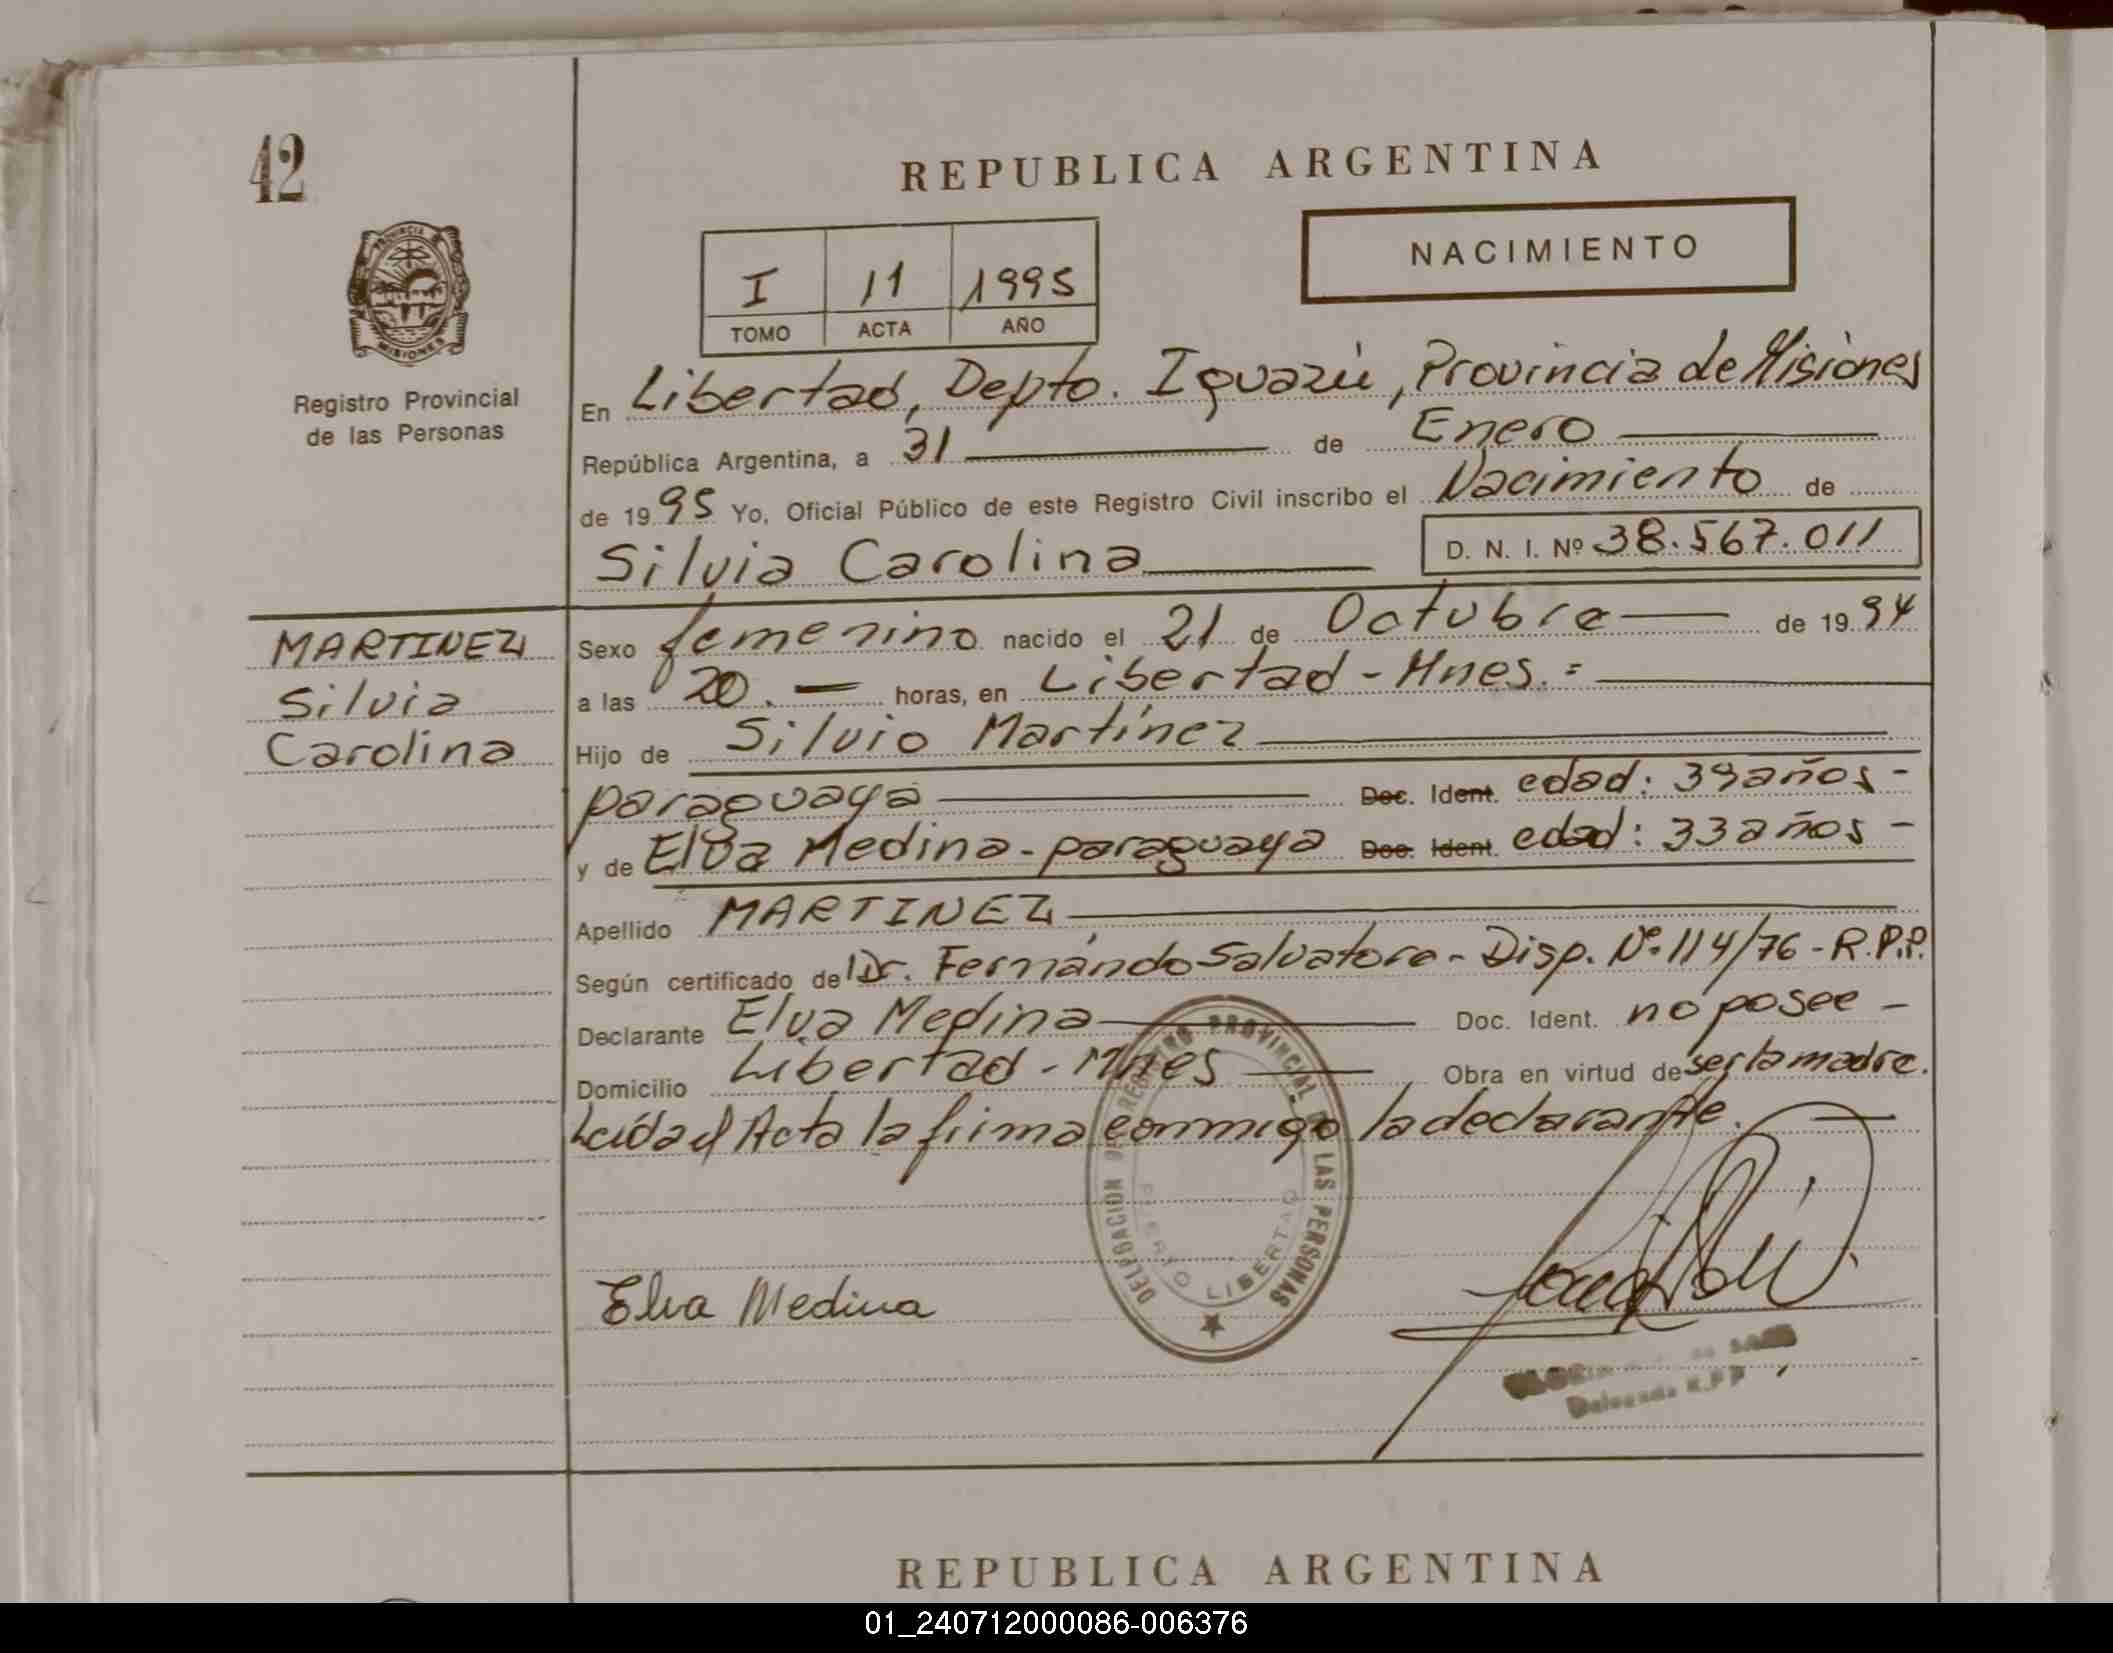 42
REPUBLICA ARGENTINA
PROVINCIA
MISIONES
Registro Provincial
de las Personas
I 11 1995
TOMO ACTA AÑO
NACIMIENTO
En Libertad, Depto. Iguazú, Provincia de Misiones
República Argentina, a 31 de Enero
de 1995 Yo, Oficial Público de este Registro Civil inscribo el Nacimiento de
Silvia Carolina D. N. I. Nº 38.567.011
MARTINEZ
Silvia
Carolina
Sexo femenino nacido el 21 de Octubre de 1994
a las 20.- horas, en Libertad - Mnes.=
Hijo de Silvio Martínez
paraguaya Doc. Ident. edad: 39 años -
y de Elva Medina - paraguaya Doc. Ident. edad: 33 años -
Apellido MARTINEZ
Según certificado de Dr. Fernándo Salvatore - Disp. Nº 114/76 - R.P.P.
Declarante Elva Medina Doc. Ident. no posee -
Domicilio Libertad - Mnes Obra en virtud de ser la madre.
Leída el Acta la firma conmigo la declarante.
DELEGACION DE REGISTRO PROVINCIAL DE LAS PERSONAS
PUERTO LIBERTAD
Elva Medina
Delegada R.P.P
REPUBLICA ARGENTINA
01_240712000086-006376